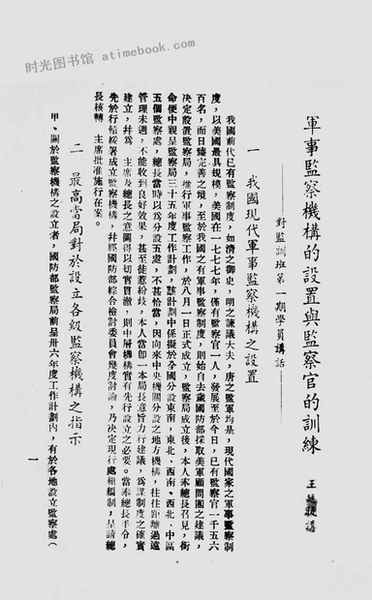 时光图书馆 atimebook.com
軍事監察機構的設置與監察官的訓練
對監訓班第一期學員講話
王 講
一 我國現代軍事監察機構之設置
我國前代已有監察制度,如清之御史,明之諫議大夫,唐之監軍均是,現代國家之軍事監察制
度,以美國最具規模,美國在一七七七年,僅有監察官一人,發展至於今日,已有監察官一千五六
百名,而日臻完善之境,至於我國之有軍事監察制度,則始自去歲國防部採取美軍顧問團之建議,
決定設置監察局,推行軍事監察工作,於八月一日正式成立,監察局成立後,本人承總長召見,銜
命便中親呈監察局三十五年度工作計劃,該計劃中係擬於全國分設東南,東北、西南、西北、中區
五個監察處,總長當時以為分設五處,不甚恰當,因向來中央機關分設之地方機構,往往距離過遠
管理未週,不能收到良好效果,甚至徒惹紛歧,本人當即一本局長意旨力行建議,為謀制度之確實
建立,并為 主席及總長之意圖得以切實貫澈,則中層機構實有先行設立之必要。當承總長手令,
先於行轅綏署成立監察機構,并經國防部綜合檢討委員會幾度討論,乃決定現行處組編制,呈請總
長核轉 主席批准施行在案。
二 最高當局對於設立各級監察機構之指示
甲、關於監察機構之設立者,國防部監察局前呈卅六年度工作計劃內,有於各地設立監察處(
一